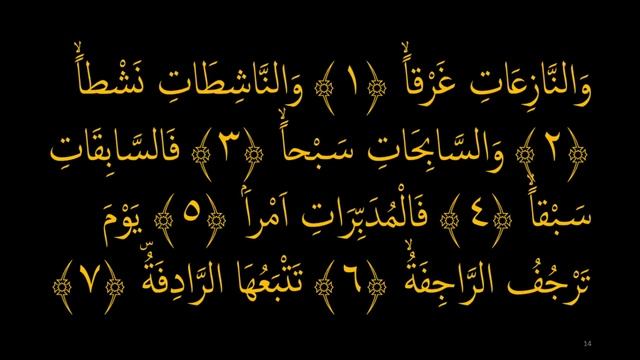 وَالنَّازِعَاتِ غَرْقاًۙ ﴿١﴾ وَالنَّاشِطَاتِ نَشْطاًۙ
﴿٢﴾ وَالسَّابِحَاتِ سَبْحاًۙ ﴿٣﴾ فَالسَّابِقَاتِ
سَبْقاًۙ ﴿٤﴾ فَالْمُدَبِّرَاتِ اَمْراًۢ ﴿٥﴾ يَوْمَ
تَرْجُفُ الرَّاجِفَةُۙ ﴿٦﴾ تَتْبَعُهَا الرَّادِفَةُۜ ﴿٧﴾
14